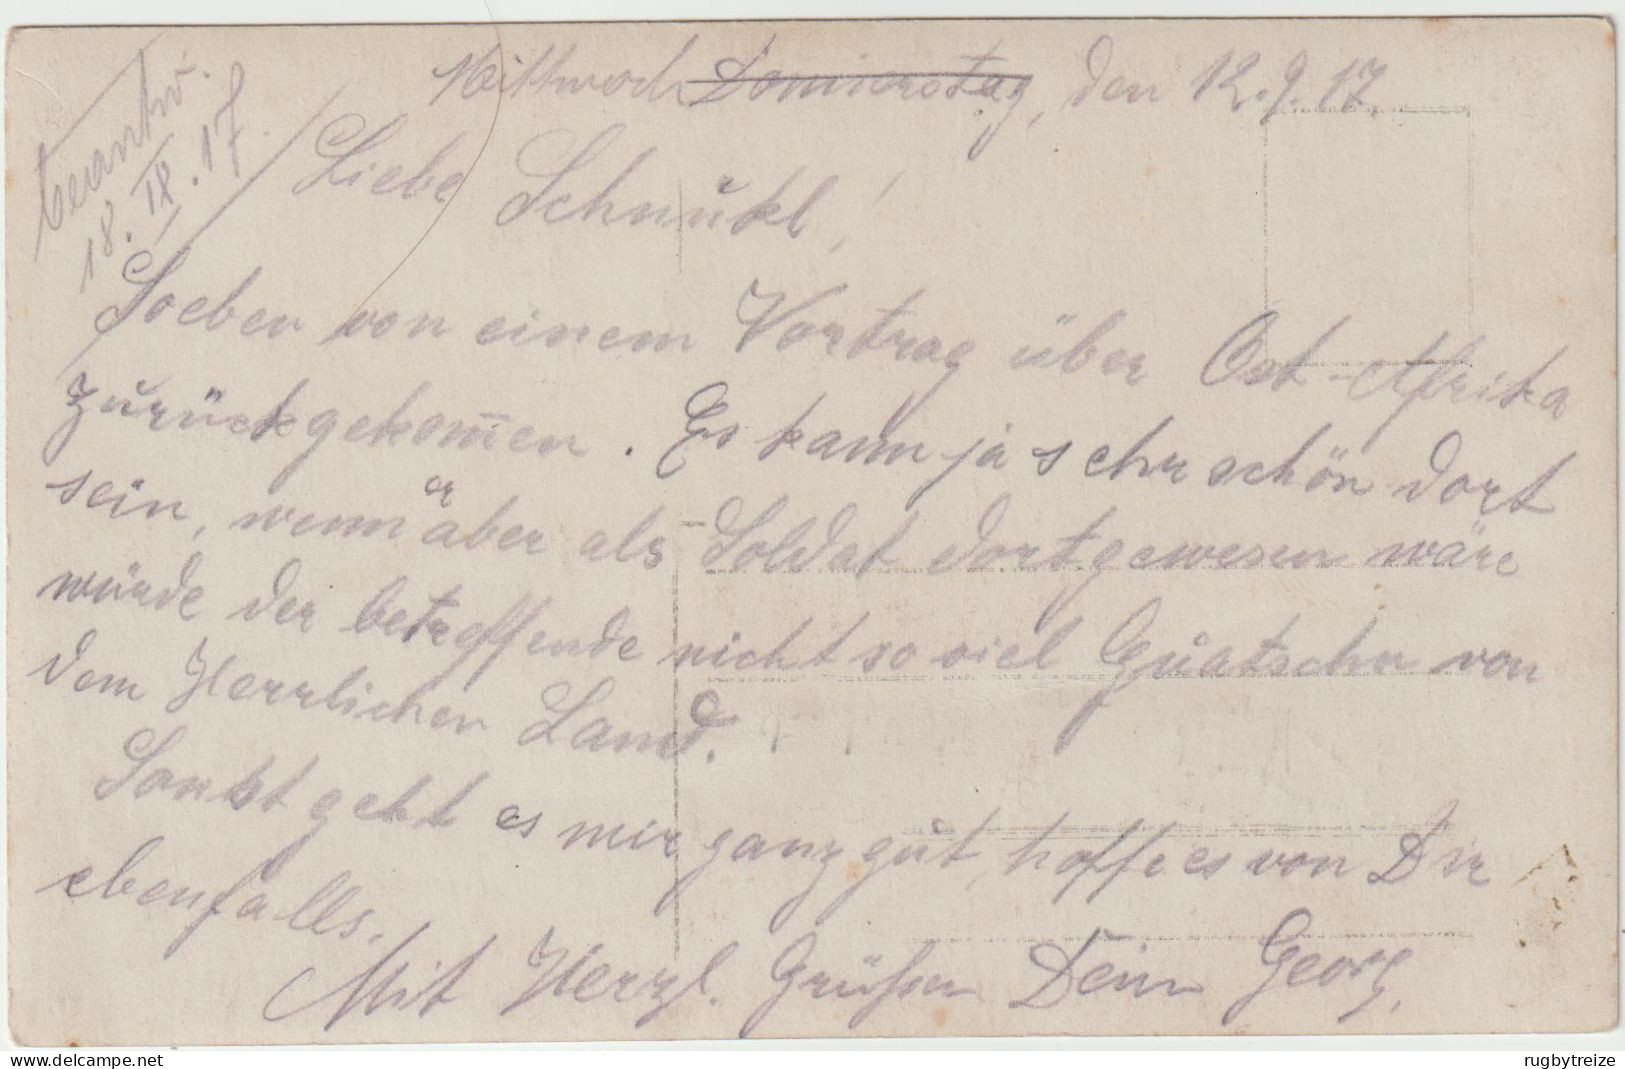 beantw.
18. IX. 17
Mittwoch Donnerstag, den 12.9.17.
Liebe Schnukl!
Soeben von einem Vortrag über Ost-Afrika
zurückgekom̅en. Es kann ja sehr schön dort
sein, wenn er aber als Soldat dortgewesen wäre
würde der betreffende nicht so viel Quatschen von
dem Herrlichen Land.
Sonst geht es mir ganz gut, hoffe es von Dir
ebenfalls.
Mit Herzl. Grüßen Dein Georg.
delcampe.net
rugbytreize